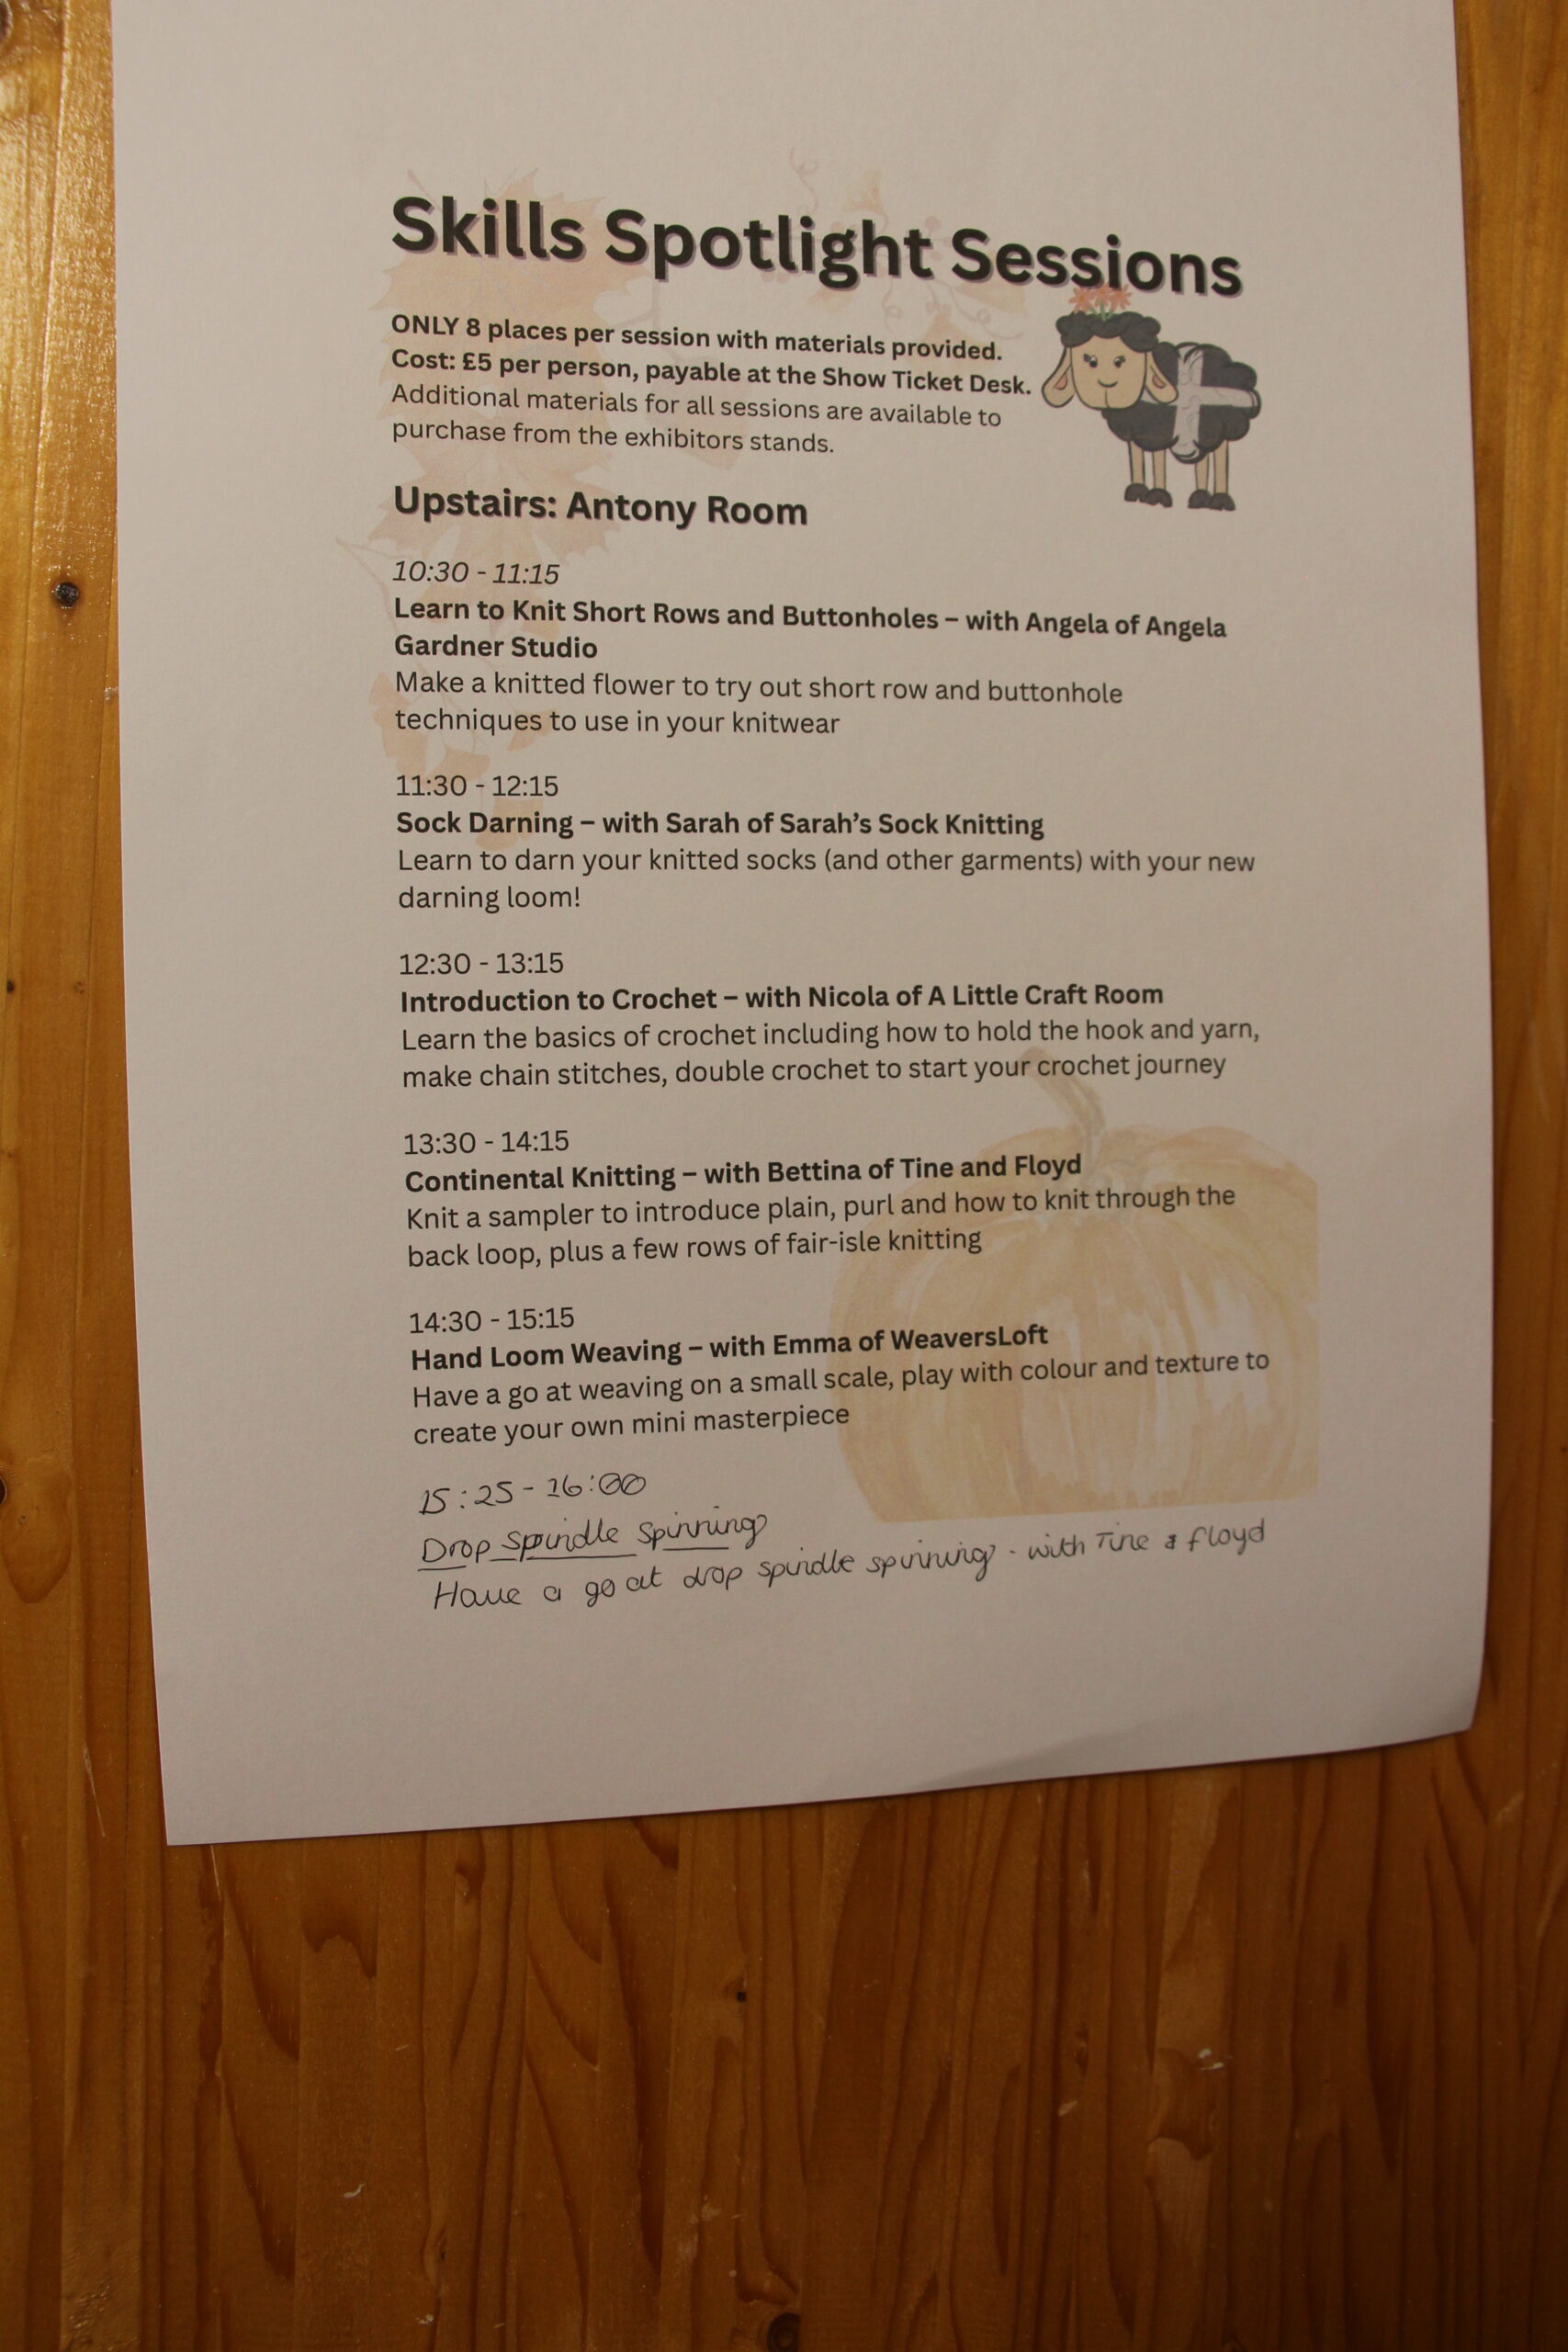 Skills Spotlight Sessions
ONLY 8 places per session with materials provided.
Cost: £5 per person, payable at the Show Ticket Desk.
Additional materials for all sessions are available to
purchase from the exhibitors stands.
Upstairs: Antony Room
10:30 - 11:15
Learn to Knit Short Rows and Buttonholes – with Angela of Angela
Gardner Studio
Make a knitted flower to try out short row and buttonhole
techniques to use in your knitwear
11:30 - 12:15
Sock Darning – with Sarah of Sarah’s Sock Knitting
Learn to darn your knitted socks (and other garments) with your new
darning loom!
12:30 - 13:15
Introduction to Crochet – with Nicola of A Little Craft Room
Learn the basics of crochet including how to hold the hook and yarn,
make chain stitches, double crochet to start your crochet journey
13:30 - 14:15
Continental Knitting – with Bettina of Tine and Floyd
Knit a sampler to introduce plain, purl and how to knit through the
back loop, plus a few rows of fair-isle knitting
14:30 - 15:15
Hand Loom Weaving – with Emma of WeaversLoft
Have a go at weaving on a small scale, play with colour and texture to
create your own mini masterpiece
15:25 - 16:00
Drop spindle spinning
Have a go at drop spindle spinning - with Tine & floyd